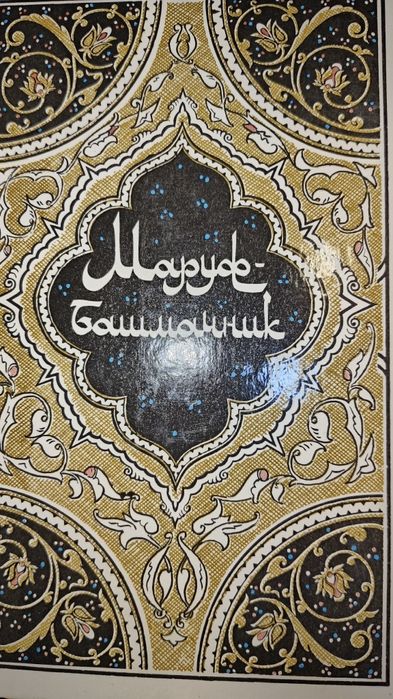 Маруф-
Башмачник